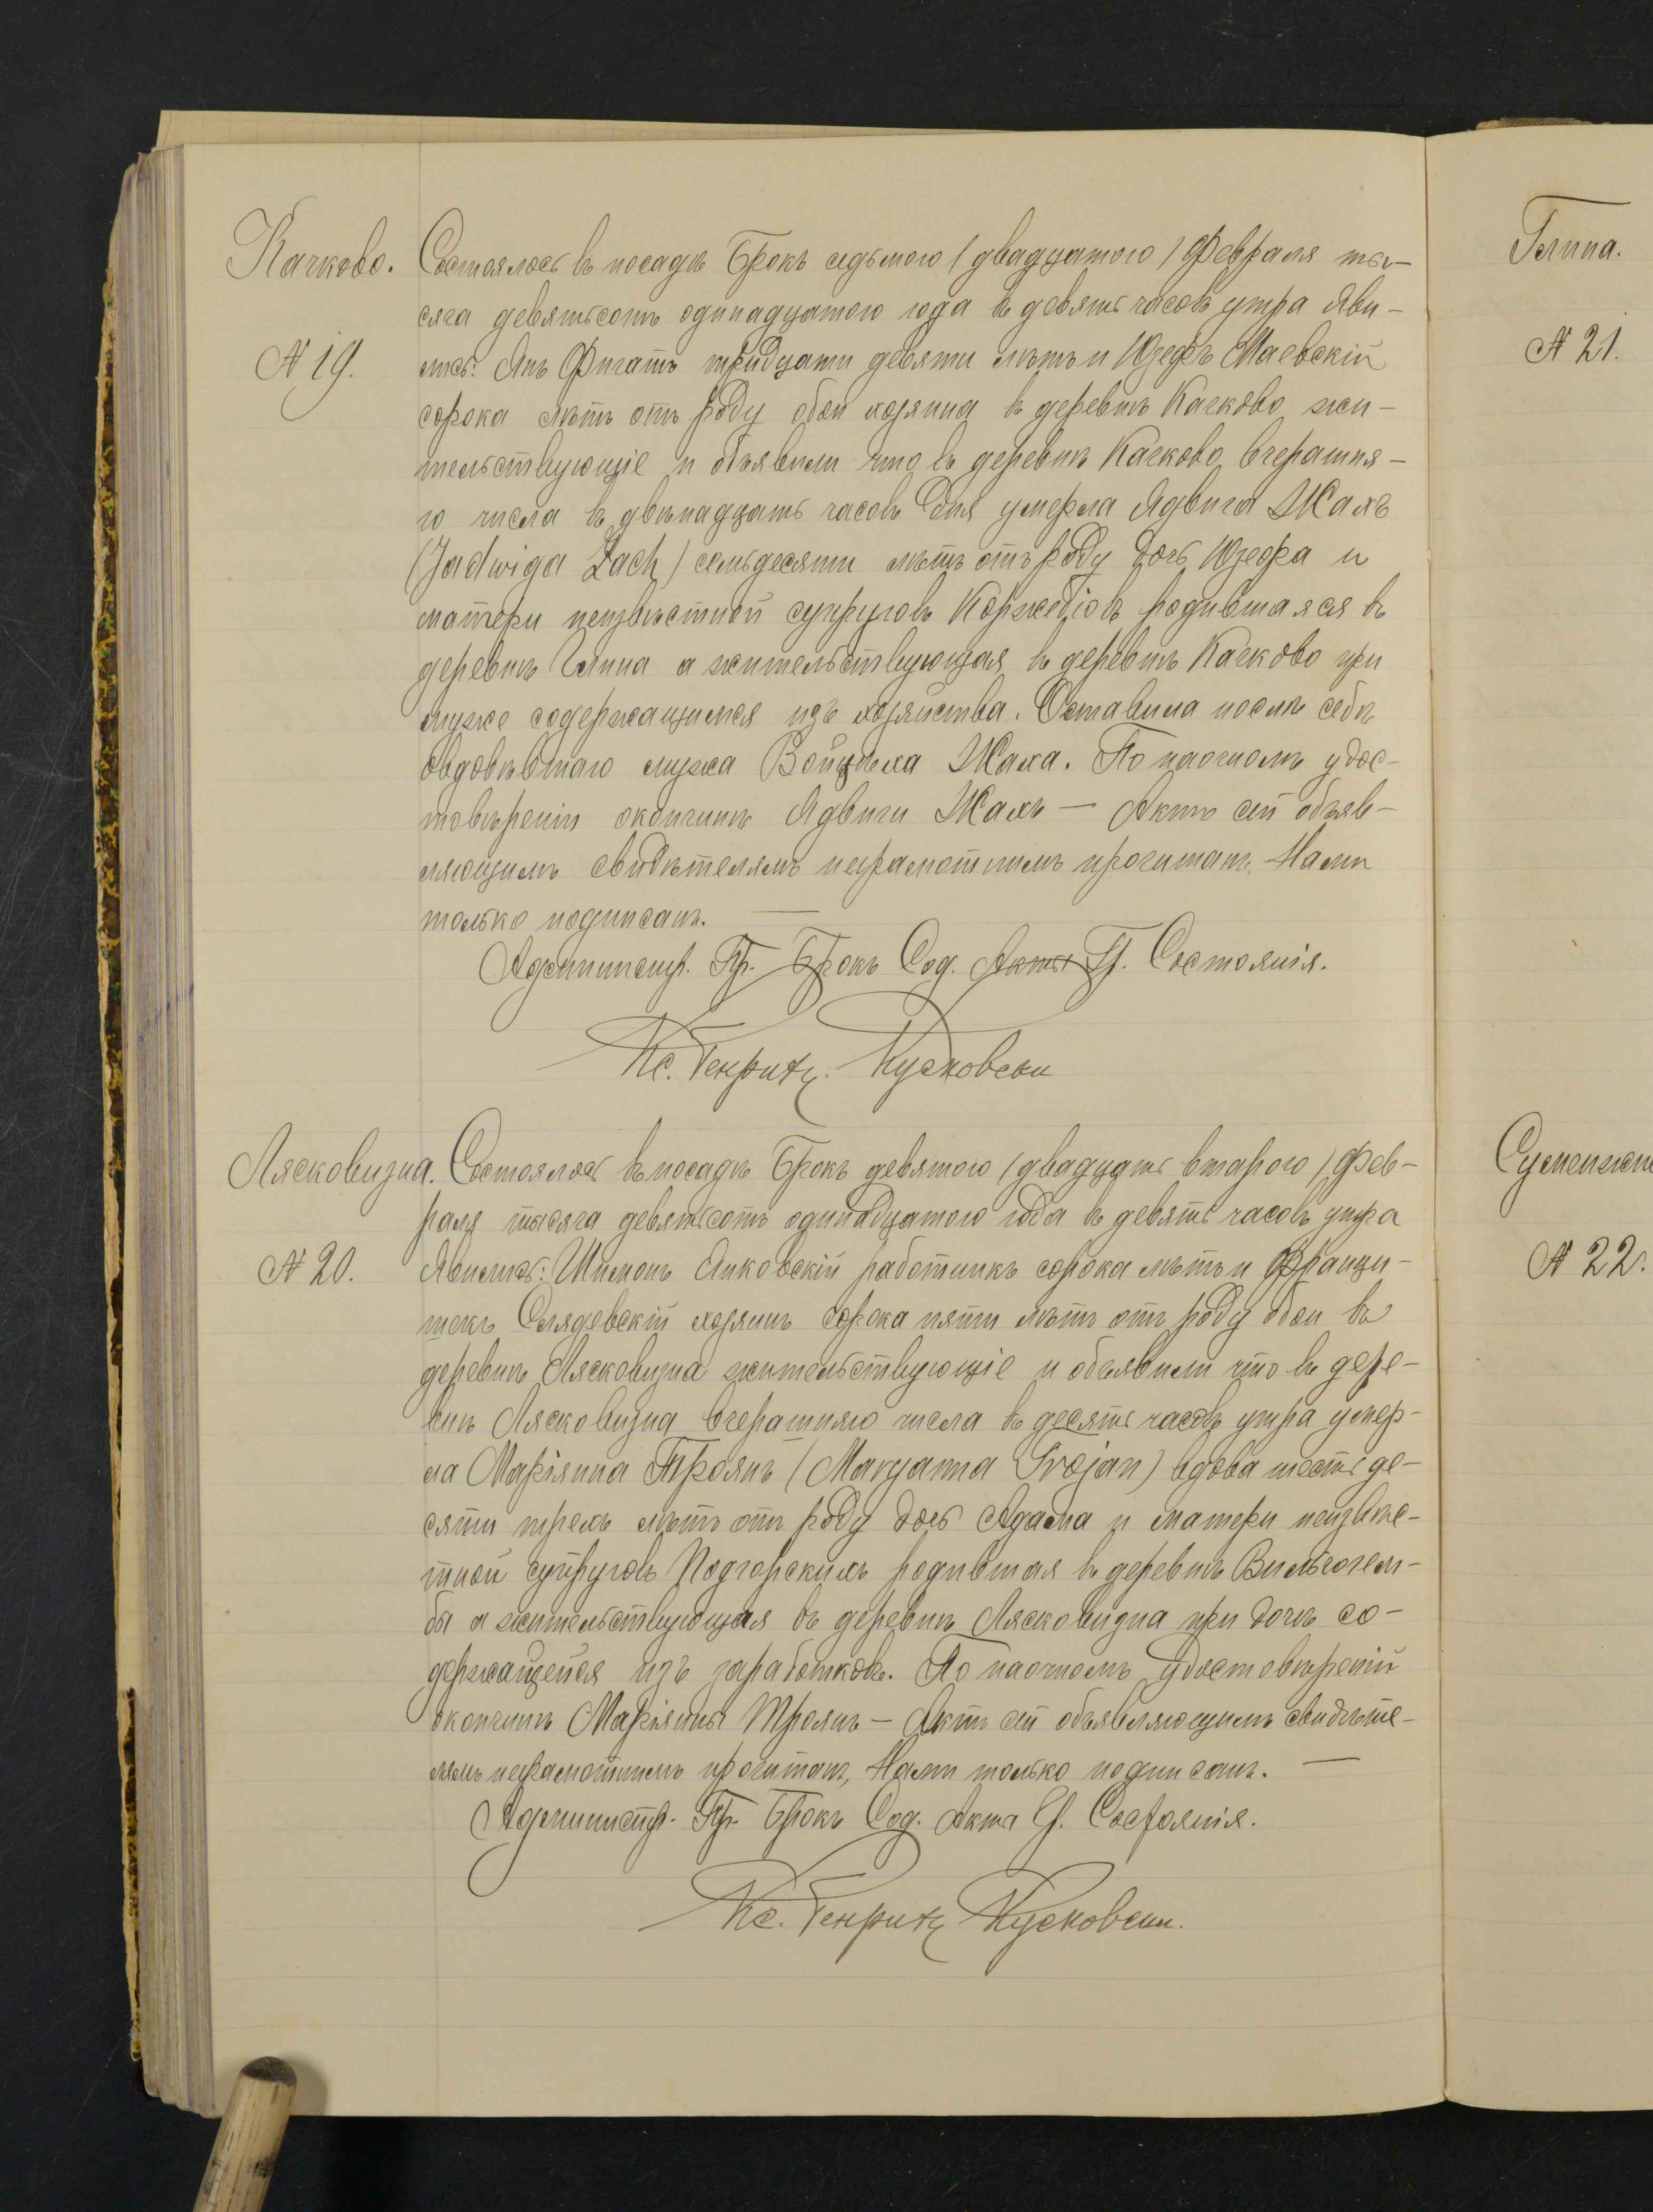 Качково.
N 19.
Состоялось въ посадѣ Брокъ седьмого (двадцатого) Февраля ты-
сяча девятьсотъ одинадцатого года въ девять часовъ утра Яви-
лись: Янъ Фигатъ тридцати девяти лѣтъ и Юзефъ Маевскій
сорока лѣтъ отъ роду обои хозяина въ деревнѣ Качково жи-
тельствующіе и объявили что въ деревнѣ Качково вчерашня-
го числа въ двѣнадцать часовъ дня умерла Ядвига Жахъ
(Jadwiga Żach) семьдесяти лѣтъ отъ роду дочь Юзефа и
матери неизвѣстной супруговъ Коржебіовъ родившаяся въ
деревнѣ Глина а жительствующая въ деревнѣ Качково при
муже содержащимся изъ хозяйства. Оставила послѣ себѣ
овдовѣвшаго мужа Войцѣха Жаха. По наочномъ удос-
товѣреніи окончинѣ Ядвиги Жахъ — Актъ сей объяв-
ляющимъ свидѣтелямъ неграмотнымъ прочитанъ, Нами
только подписанъ. —
Администр. Пр. Брокъ Сод. Акты Гр. Состоянія.
Кс. Генрикъ Кусковски
Лясковизна.
N 20.
Состоялось въ посадѣ Брокъ девятого (двадцать второго) Фев-
раля тысяча девятьсотъ одинадцатого года въ девять часовъ утра
Явились: Шимонъ Янковскій работникъ сорока лѣтъ и Франци-
шекъ Слядевскій хозяинъ сорока пяти лѣтъ отъ роду обои въ
деревнѣ Лясковизна жительствующіе и объявили что въ дере-
внѣ Лясковизна вчерашняго числа въ десять часовъ утра умер-
ла Маріянна Троянъ (Maryanna Trojan) вдова шестьде-
сяти трехъ лѣтъ отъ роду дочь Адама и матери неизвѣс-
тной супруговъ Подгорскихъ родившая въ деревнѣ Вильчогем-
бы а жительствующая въ деревнѣ Лясковизна при дочѣ со-
держащейся изъ заработковъ. По наочномъ удостовѣреній
окончинѣ Маріянны Троянъ — Актъ сей объявляющимъ свидѣте-
лямъ неграмотнымъ прочитанъ, Нами только подписанъ. —
Администр. Пр. Брокъ Сод. Акта Гр. Состоянія.
Кс. Генрикъ Кусковски.
Глина.
N 21.
N 22.